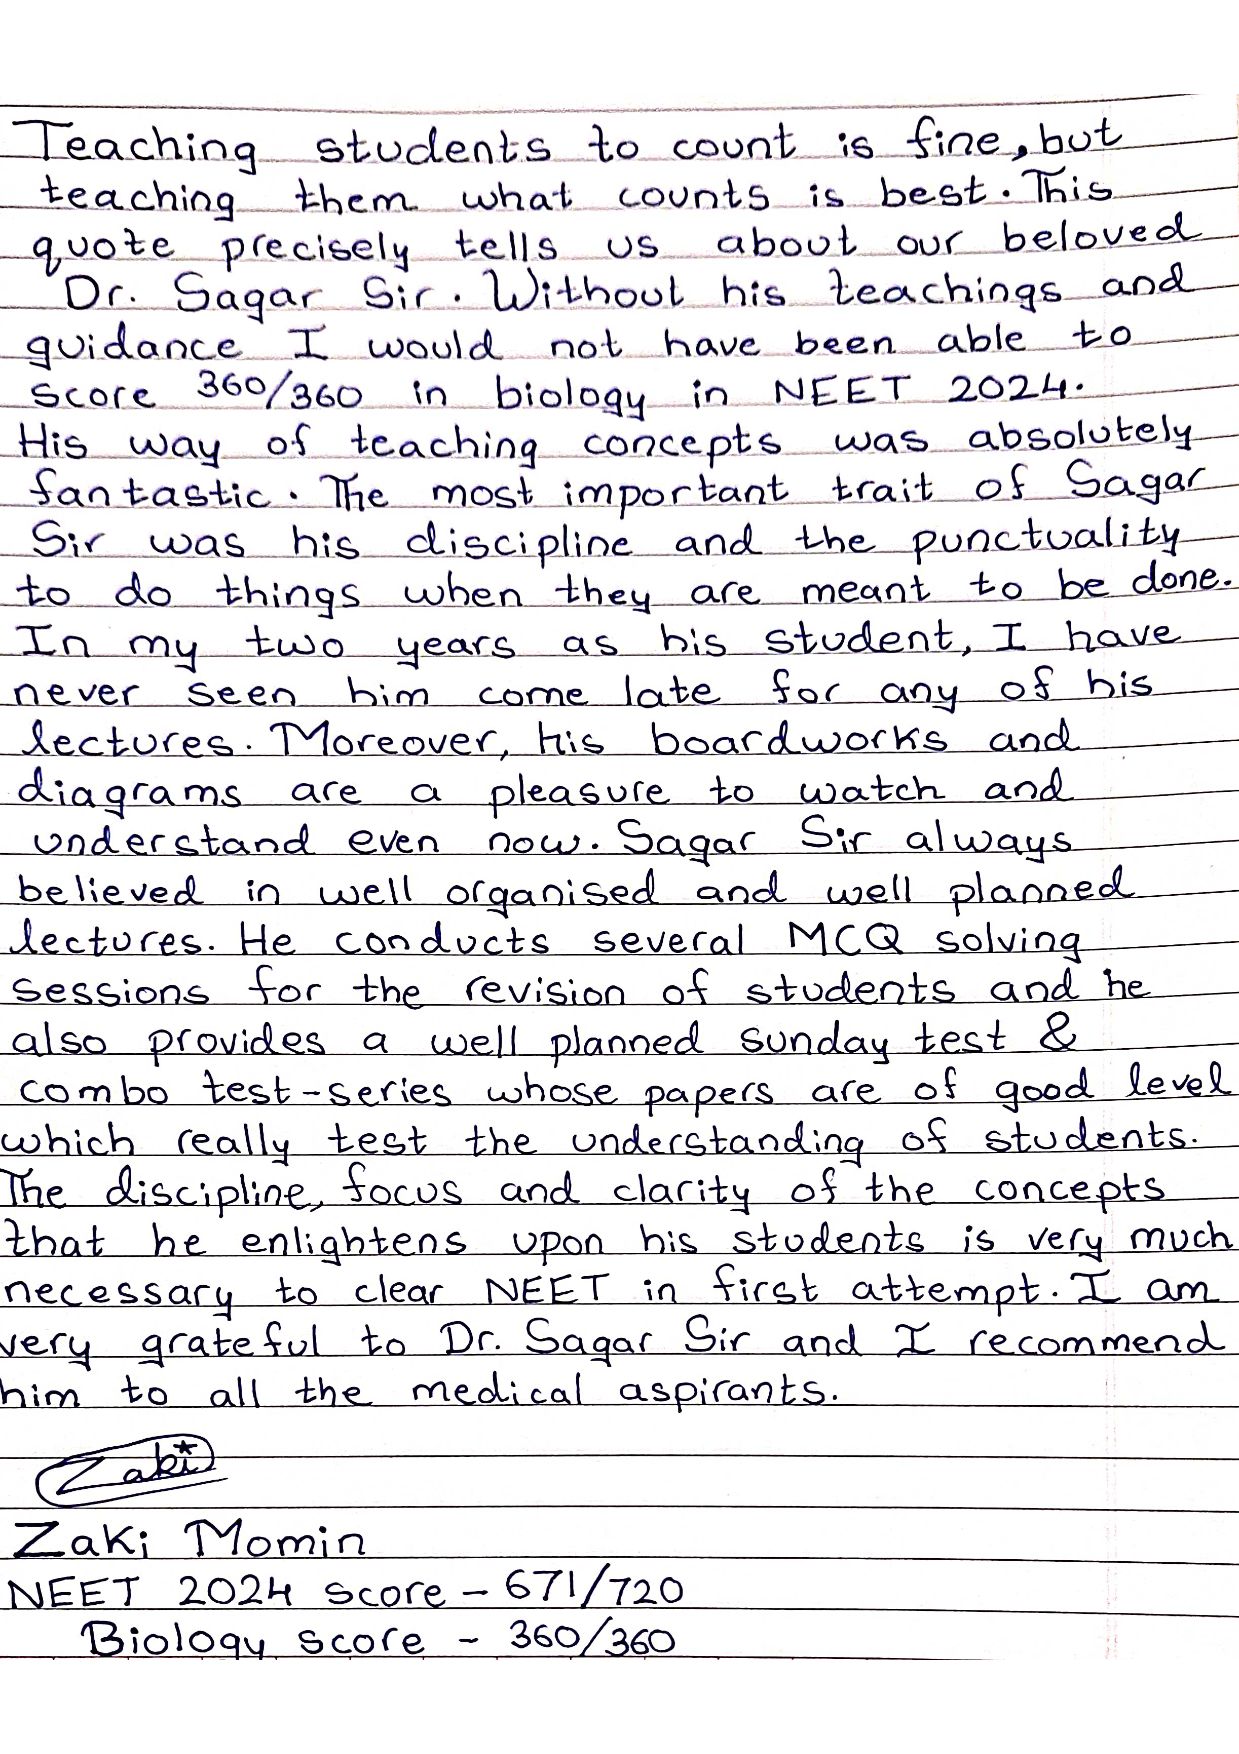 Teaching students to count is fine, but
teaching them what counts is best. This
quote precisely tells us about our beloved
Dr. Sagar Sir. Without his teachings and
guidance I would not have been able to
score 360/360 in biology in NEET 2024.
His way of teaching concepts was absolutely
fantastic. The most important trait of Sagar
Sir was his discipline and the punctuality
to do things when they are meant to be done.
In my two years as his student, I have
never seen him come late for any of his
lectures. Moreover, his boardworks and
diagrams are a pleasure to watch and
understand even now. Sagar Sir always
believed in well organised and well planned
lectures. He conducts several MCQ solving
sessions for the revision of students and he
also provides a well planned sunday test &
combo test-series whose papers are of good level
which really test the understanding of students.
The discipline, focus and clarity of the concepts
that he enlightens upon his students is very much
necessary to clear NEET in first attempt. I am
very grateful to Dr. Sagar Sir and I recommend
him to all the medical aspirants.
Zaki
Zaki Momin
NEET 2024 score - 671/720
Biology score - 360/360